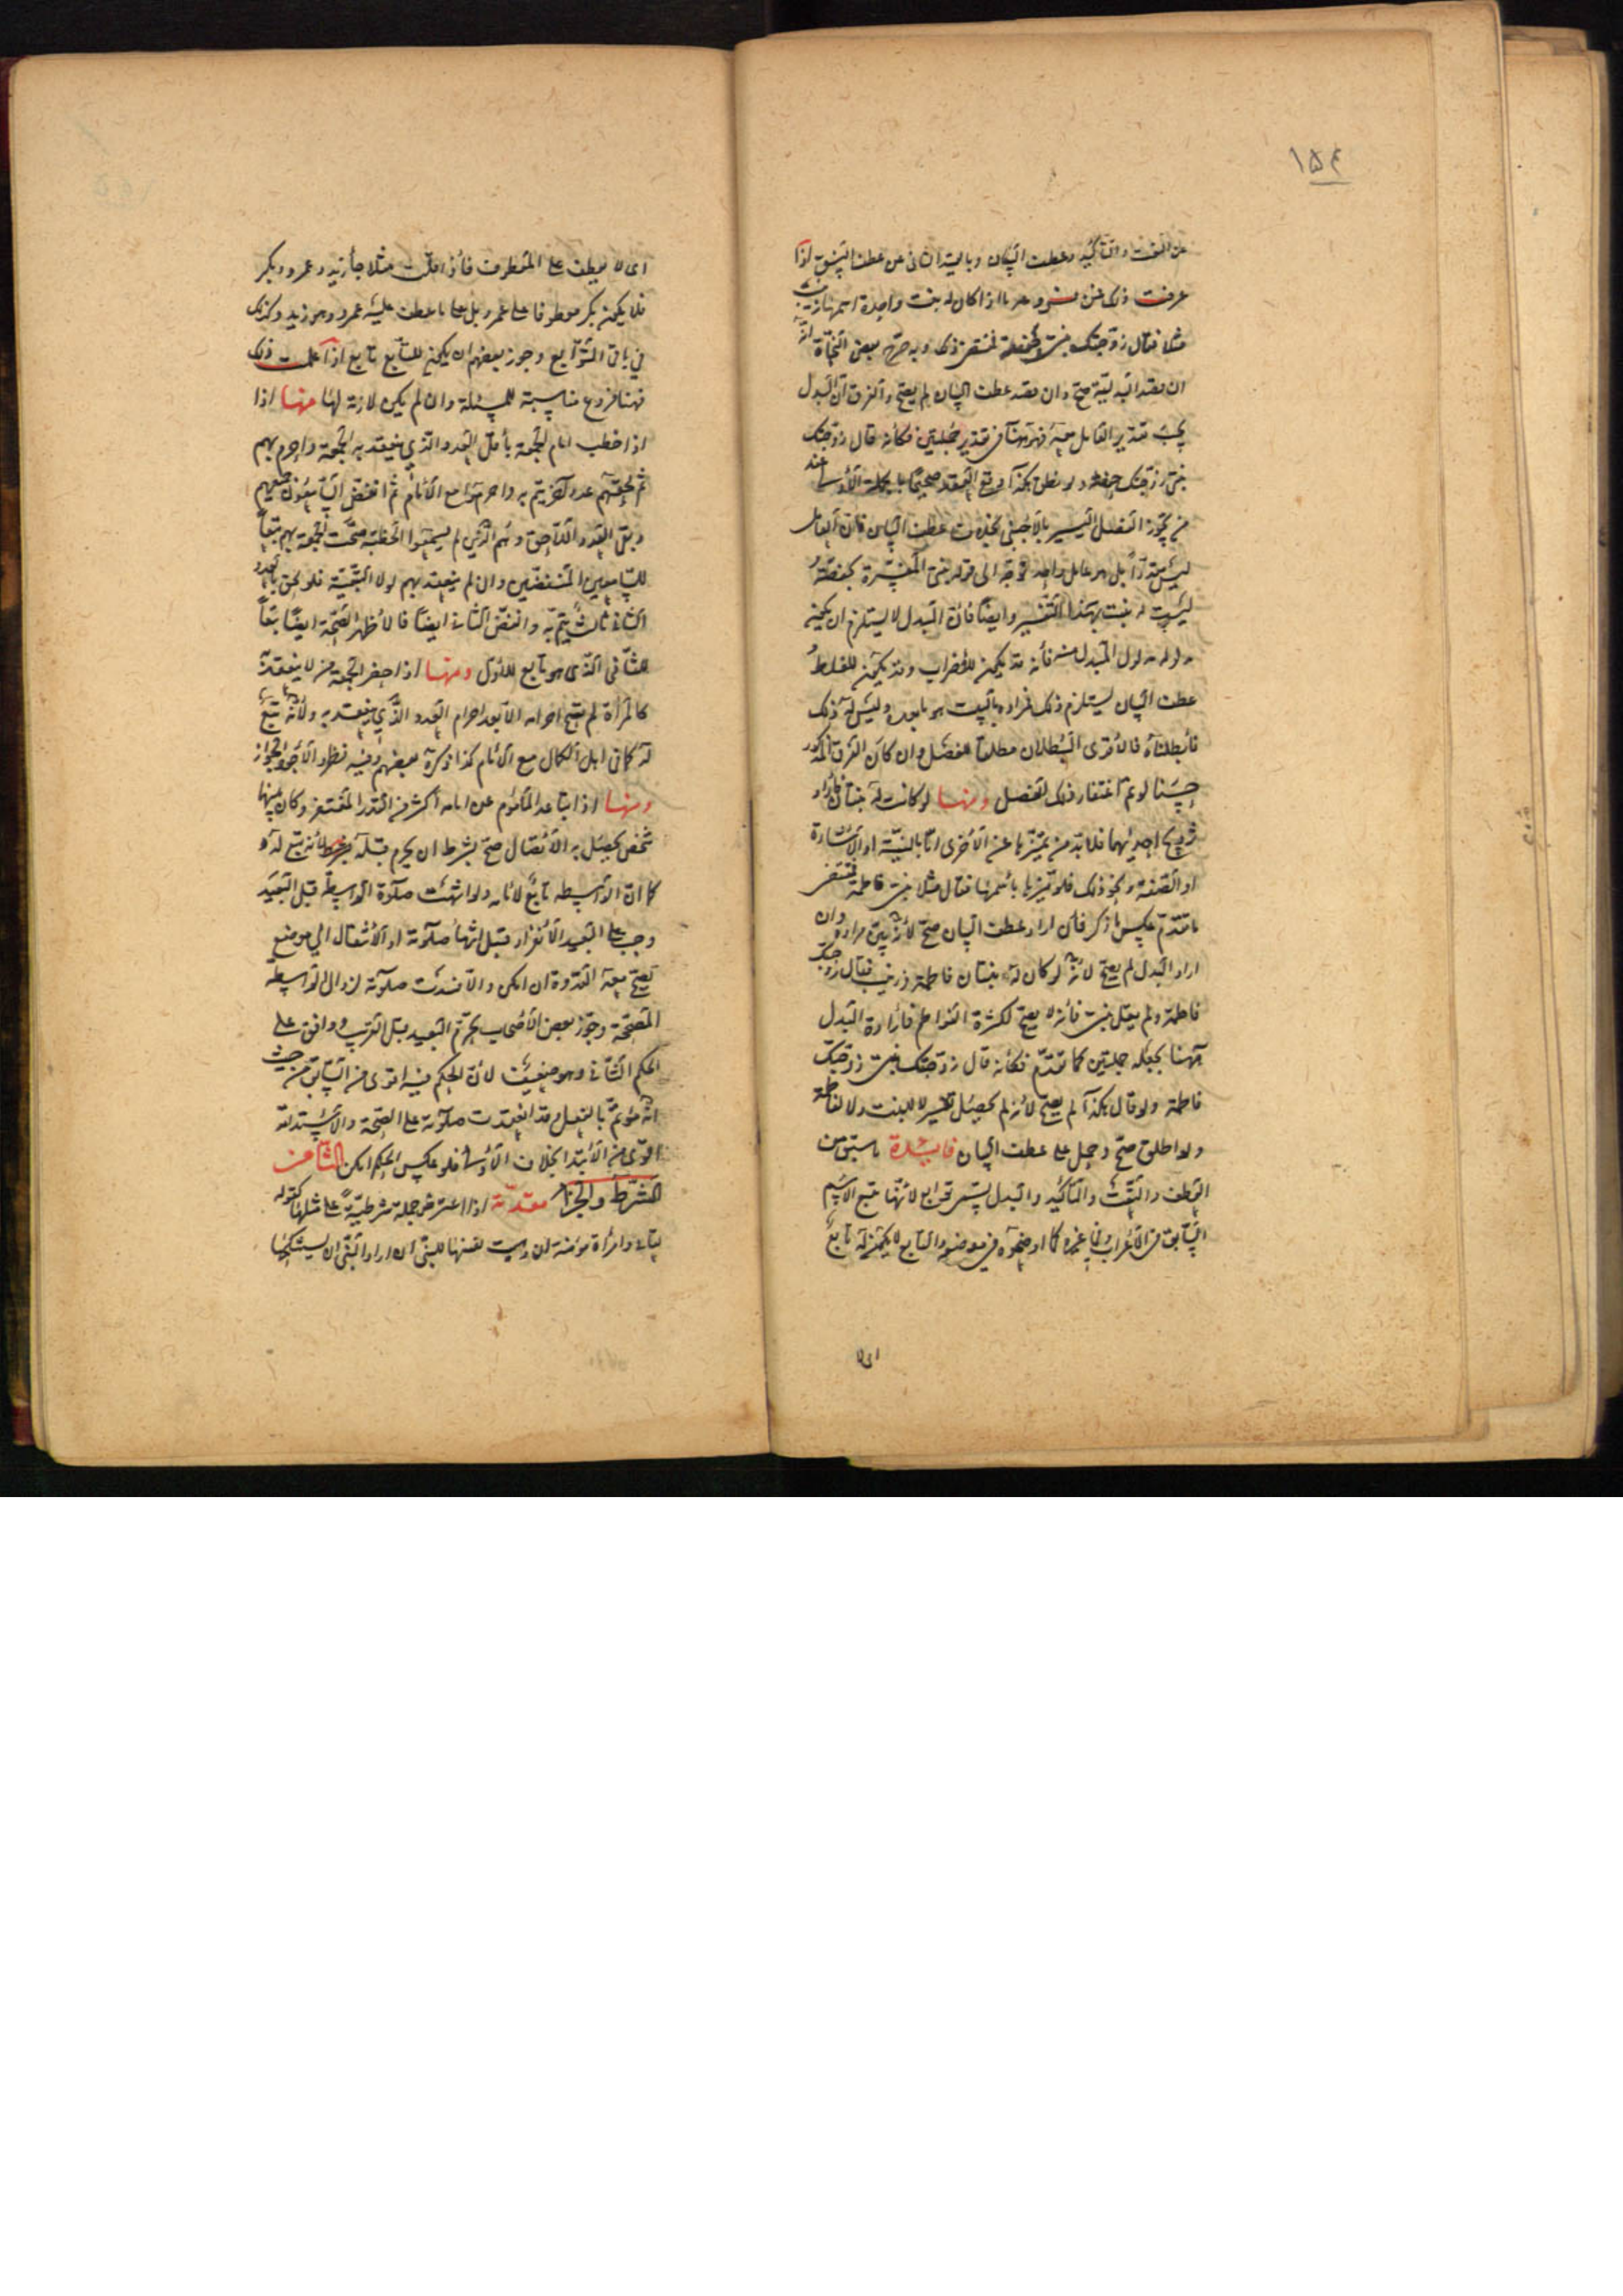 ١٥٤
عن النعت والتأكيد وعطف البيان وبالقيد الثاني عن عطف النسق اذا
عرفت ذلك فمن فروعه ما اذا كان له بنت واحدة اسمها زينب
مثلا فقال زوجتك بنتي حفصة ذلك وبه صرح بعض النحاة انه
ان قصد البدلية صح وان قصد عطف البيان لم يصح والفرق ان البدل
يجب تقدير العامل معه فهو هنا في تقدير جملتين فكأنه قال زوجتك
بنتي زوجتك حفصة ولو نطق بهكذا وقع العقد صحيحا بالجملة الأولى عند
من يجوز الفصل اليسير بالأجنبي بخلاف عطف البيان فان العامل
ليس مقدرا بل هو عامل واحد توجه الى قوله بنتي المفسرة بحفصة
ليست له بنت بهذا التفسير وايضا فان البدل لا يستلزم ان يكون
مدلوله مدلول المبدل منه فأنه قد يكون للإضراب وقد يكون للغلط
عطف البيان يستلزم ذلك فمراده بالبنت هو ما بعده وليس له ذلك
فأبطلناه فالأقوى البطلان مطلقا للفصل وان كان الفرق المذكور
حسنا لو تم اغتفار ذلك الفصل ومنها لو كانت له بنتان فأراد
تزويج احديهما فلا بد من تميزها عن الأخرى اما بالنية او الأشارة
او الصفة ونحو ذلك فلو ميزها باسمها فقال مثلا بنتي فاطمة
ما تقدم عكس ما ذكر فان اراد عطف البيان صح لأنه بين مراده وان
اراد البدل لم يصح لأنه لو كان له بنتان فاطمة وزينب فقال زوجتك
فاطمة ولم يقل بنتي فأنه لا يصح لكثرة الفواطم فأرادة البدل
هنا بجعله جملتين كما تقدم فكأنه قال زوجتك بنتي زوجتك
فاطمة ولو قال هكذا لم يصح لأنه لم يحصل تفسير لا للبنت ولا لفاطمة
ولو اطلق صح وحمل على عطف البيان فائدة ما سبق من
العطف والنعت والتأكيد والبدل يسمى توابع لأنها تتبع الاسم
السابق في الأعراب وفي غيره كما اوضحوه في موضعه والتابع لا يكون له تابع
اى لا
اى لا يعطف على المعطوف فأذا قلت مثلا جاء زيد وعمرو وبكر
فلا يكون بكر معطوفا على عمرو بل على ما عطف عليه عمرو وهو زيد وكذلك
في باقي التوابع وجوز بعضهم ان يكون للتابع تابع اذا علمت ذلك
فهنا فروع مناسبة للمسئلة وان لم يكن لازمة لها منها اذا
اذا خطب امام الجمعة بأقل العدد الذي ينعقد به الجمعة واحرم بهم
ثم لحقهم عدد آخر يتم به واحرموا مع الأمام ثم انفض السابقون
وبقي العدد اللاحق وهم الذين لم يسمعوا الخطبة صحت الجمعة بهم تبعا
للسامعين المنفضين وان لم ينعقد بهم لولا التبعية فلو لحق بالعدد
الثاني ثالث يتم به وانفض الثاني ايضا فالأظهر الصحة ايضا تبعا
للثاني الذي هو تابع للأول ومنها اذا حضر الجمعة من لا ينعقد به
كالمرأة لم يصح احرامه الا بعد احرام العدد الذي ينعقد به ولأنه تبع
له كما في اهل الكمال مع الأمام كذا ذكره بعضهم وفيه نظر والأجود الجواز
ومنها اذا تباعد المأموم عن امامه اكثر من القدر المغتفر وكان بينهما
شخص يحصل به الأتصال صح بشرط ان يحرم قبله لأنه تبع له
كما ان الواسطه تابع لأمامه ولو انتهت صلوة الواسطة قبل البعيد
وجب على البعيد الأنفراد قبل انتهاء صلوته او الأنتقال الى موضع
تصح معه القدوة ان امكن والا فسدت صلوته لزوال الواسطه
المصححة وجوز بعض الأصحاب تحرم البعيد قبل القريب ووافق على
الحكم الثاني وهو ضعيف لأن الحكم فيه اقوى من السابق من حيث
انه مؤتم بالفعل وقد انعقدت صلوته على الصحة والأستدامة
اقوى من الأبتداء بخلاف الأول فلو عكس الحكم امكن الثامن
الشرط والجزاء مقدمة اذا اعترض جملة شرطية على مثلها كقوله
تعالى وامرأة مؤمنة ان وهبت نفسها للنبي ان اراد النبي ان يستنكحها